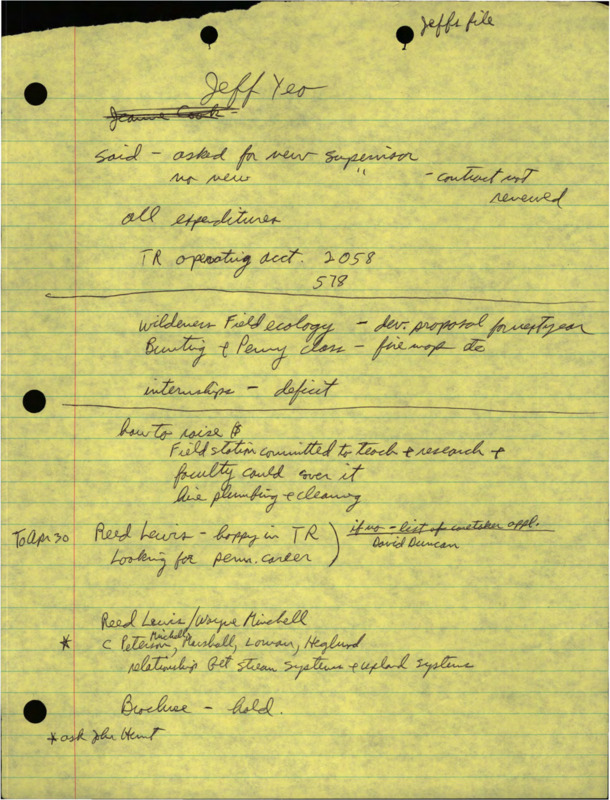 Jeffs file
Jeff Yeo
Jeanne Cook -
said - asked for new supervisor
no new " - contract not
renewed
all expenditures
TR operating acct. 2058
578
Wilderness Field ecology - dev. proposal for next year
Bunting & Penny class - fire map etc
internships - deficit
how to raise $
Field station committed to teach & research &
faculty could over it
hire plumbing & cleaning
To Apr 30 Reed Lewis - happy in TR ) if no - list of caretaker appl.
Looking for perm. career David Duncan
Reed Lewis / Wayne Minshall
* C Peterson, Minshall, Marshall, Lowan, Heglund
relationship bet stream systems & upland systems
Brochure - hold.
* ask John Hunt